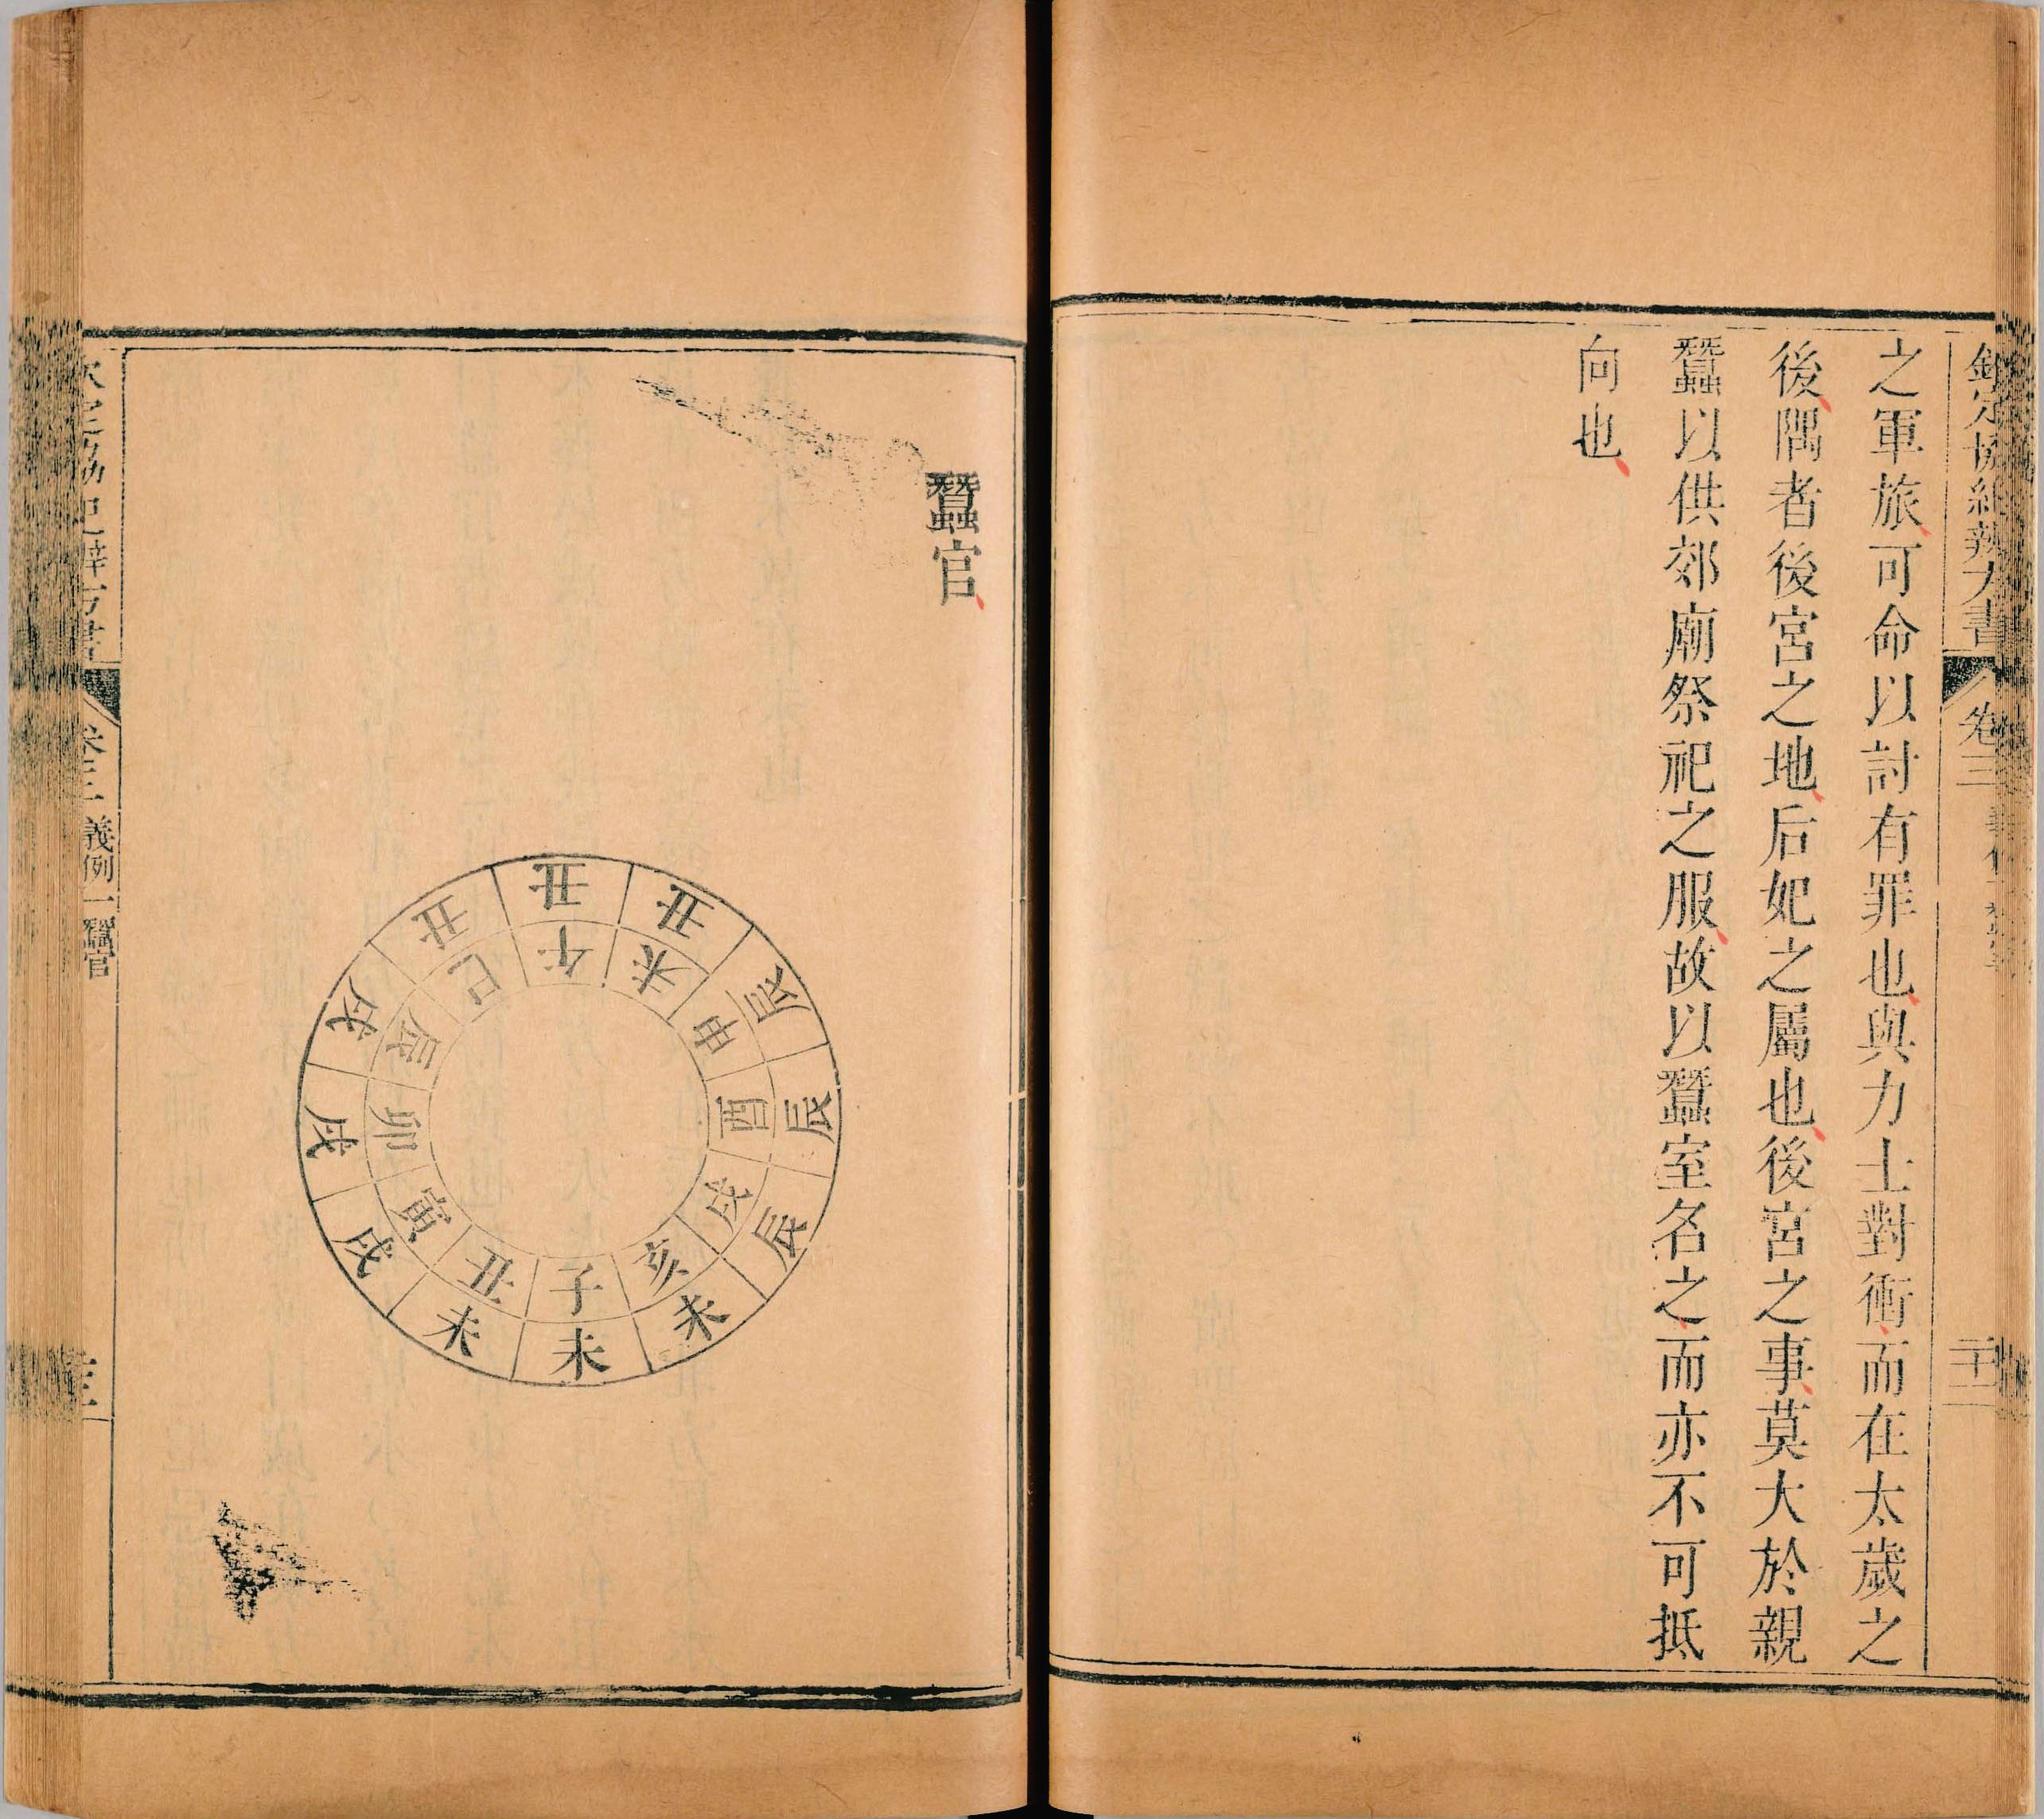 欽定協紀辨方書
卷三
之軍旅可命以討有罪也與力士對衝而在太歲之
後隅者後宮之地后妃之屬也後宮之事莫大於親
蠶以供郊廟祭祀之服故以蠶室名之而亦不可抵
向也
蠶官
丑 丑 丑 辰 辰 辰 未 未 未 戌 戌 戌
巳 午 未 申 酉 戌 亥 子 丑 寅 卯 辰
欽定協紀辨方書
卷三 義例一 蠶官